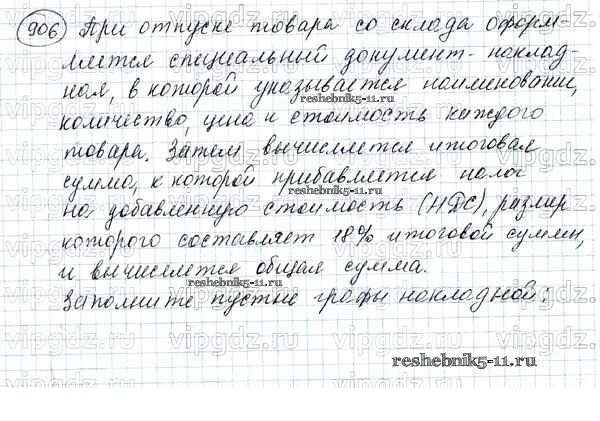 906 При отпуске товара со склада оформ-
ляется специальный документ - наклад-
ная, в которой указывается наименование,
reshebnik5-11.ru
количество, цена и стоимость каждого
товара. Затем вычисляется итоговая
сумма, к которой прибавляется налог
reshebnik5-11.ru
на добавленную стоимость (НДС), размер
которого составляет 18% итоговой суммы,
и вычисляется общая сумма.
reshebnik5-11.ru
Заполните пустые графы накладной:
reshebnik5-11.ru
vipgdz.ru